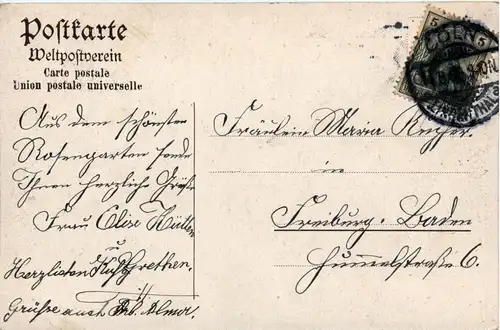 Postkarte
Weltpostverein
Carte postale
Union postale universelle
Aus dem schönsten
Rosengarten sende
Ihnen herzliche Grüße
Frau Elise Hütten
u
Herzlichen Kuß Grethen.
Grüsse auch
Fräulein Maria
in
Freiburg. Baden
Hummelstraße 6.
5 5
CÖLN